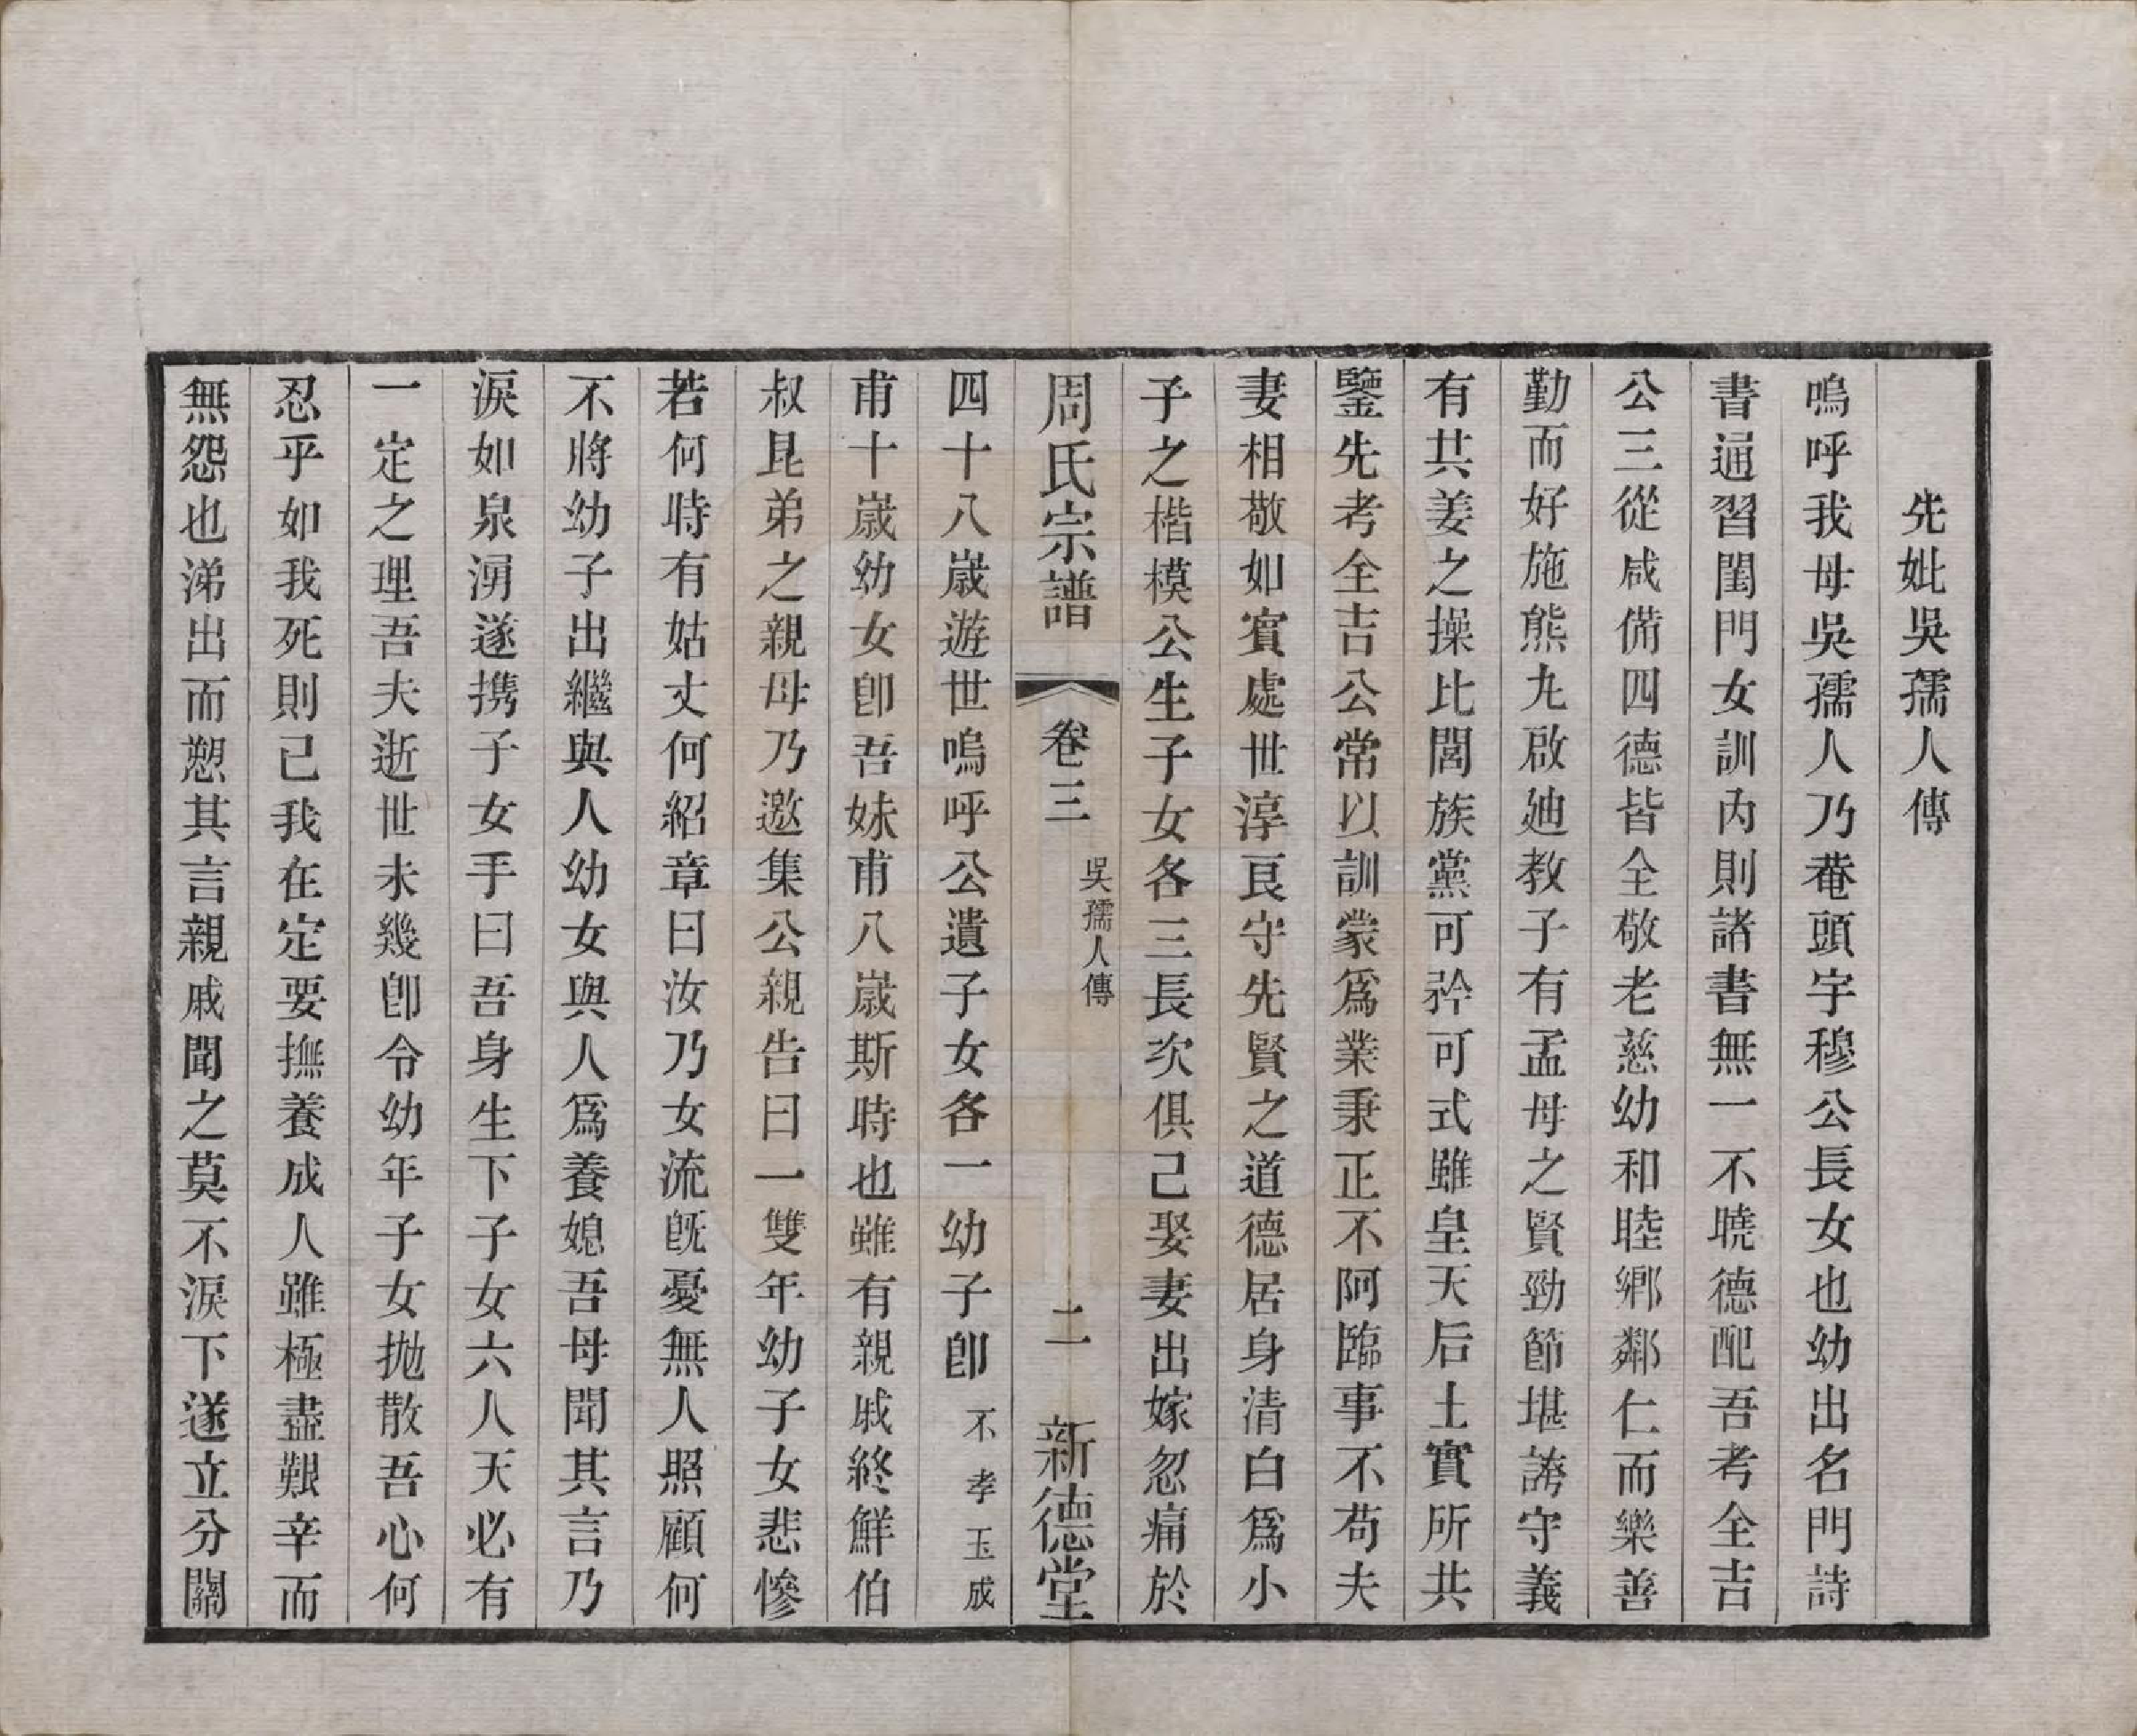 先妣吳孺人傳
嗚呼我母吳孺人乃菴頭宇穆公長女也幼出名門詩
書通習閨門女訓內則諸書無一不曉德配吾考全吉
公三從咸備四德皆全敬老慈幼和睦鄉鄰仁而樂善
勤而好施熊九啟廸教子有孟母之賢勁節堪謗守義
有共姜之操比閭族黨可矜可式雖皇天后土實所共
鑒先考全吉公常以訓蒙爲業秉正不阿臨事不苟夫
妻相敬如賓處世淳良守先賢之道德居身清白爲小
子之楷模公生子女各三長次俱己娶妻出嫁忽痛於
周氏宗譜 卷三 吳孺人傳 二 新德堂
四十八歲遊世嗚呼公遺子女各一幼子卽不孝玉成
甫十歲幼女卽吾妹甫八歲斯時也雖有親戚終鮮伯
叔昆弟之親母乃邀集公親告曰一雙年幼子女悲慘
若何時有姑丈何紹章曰汝乃女流旣憂無人照顧何
不將幼子出繼與人幼女與人爲養媳吾母聞其言乃
淚如泉湧遂携子女手曰吾身生下子女六人天必有
一定之理吾夫逝世未幾卽令幼年子女抛散吾心何
忍乎如我死則己我在定要撫養成人雖極盡艱辛而
無怨也涕出而愬其言親戚聞之莫不淚下遂立分關